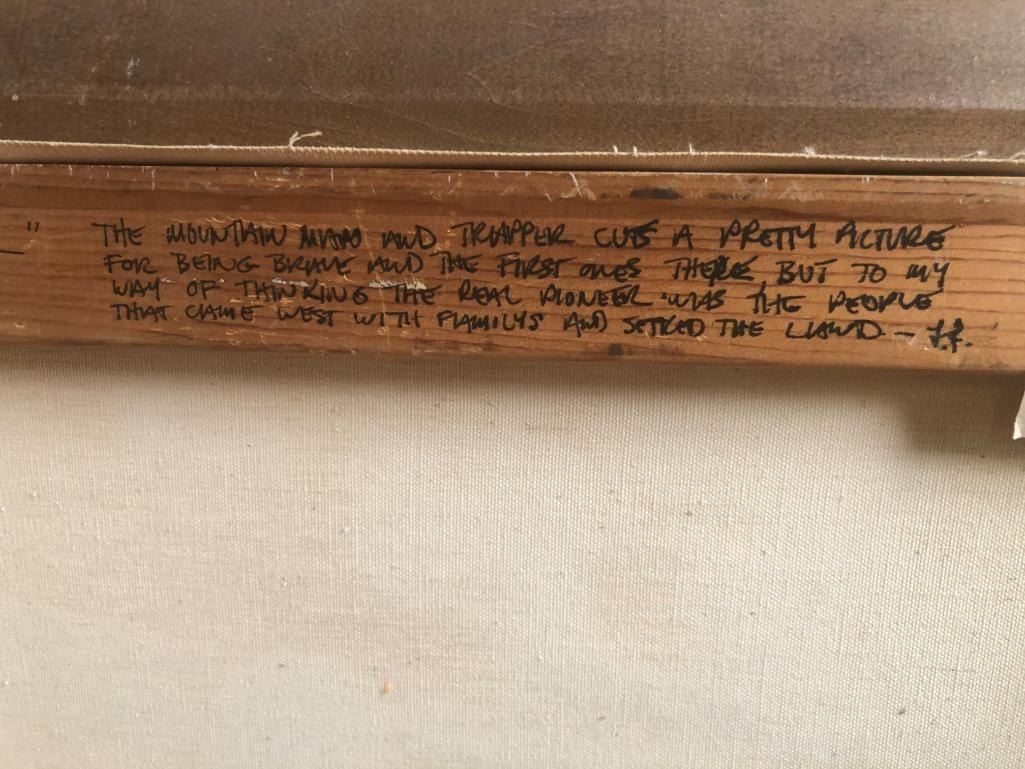 " THE MOUNTAIN MAN AND TRAPPER CUTS A PRETTY PICTURE
FOR BEING BRAVE AND THE FIRST ONES THERE, BUT TO MY
WAY OF THINKING THE REAL PIONEER WAS THE PEOPLE
THAT CAME WEST WITH FAMILYS AND SETTLED THE LAND —